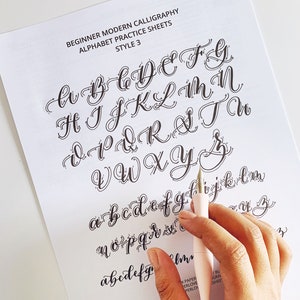 BEGINNER MODERN CALLIGRAPHY
ALPHABET PRACTICE SHEETS
STYLE 3
A B C D E F G
H I J K L M N
O P Q R S T U
V W X Y Z
a b c d e f g h i j k l m
n o p q r s
a b c d e f g h i j k l m